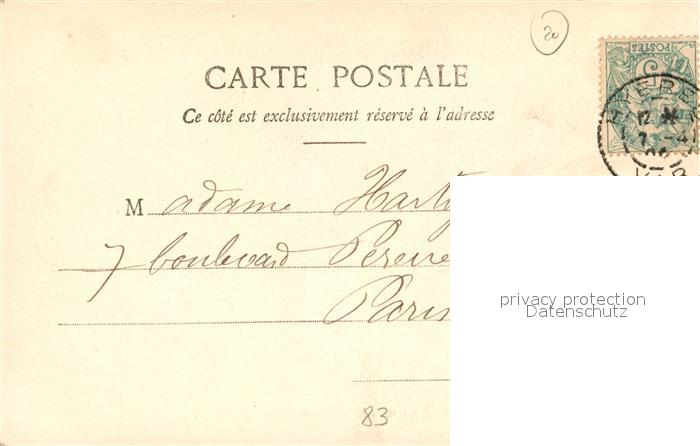 20
POSTES
CARTE POSTALE
Ce côté est exclusivement réservé à l'adresse
12
7 -4
Madame
7 boulevard Pereire
Paris
privacy protection
Datenschutz
83